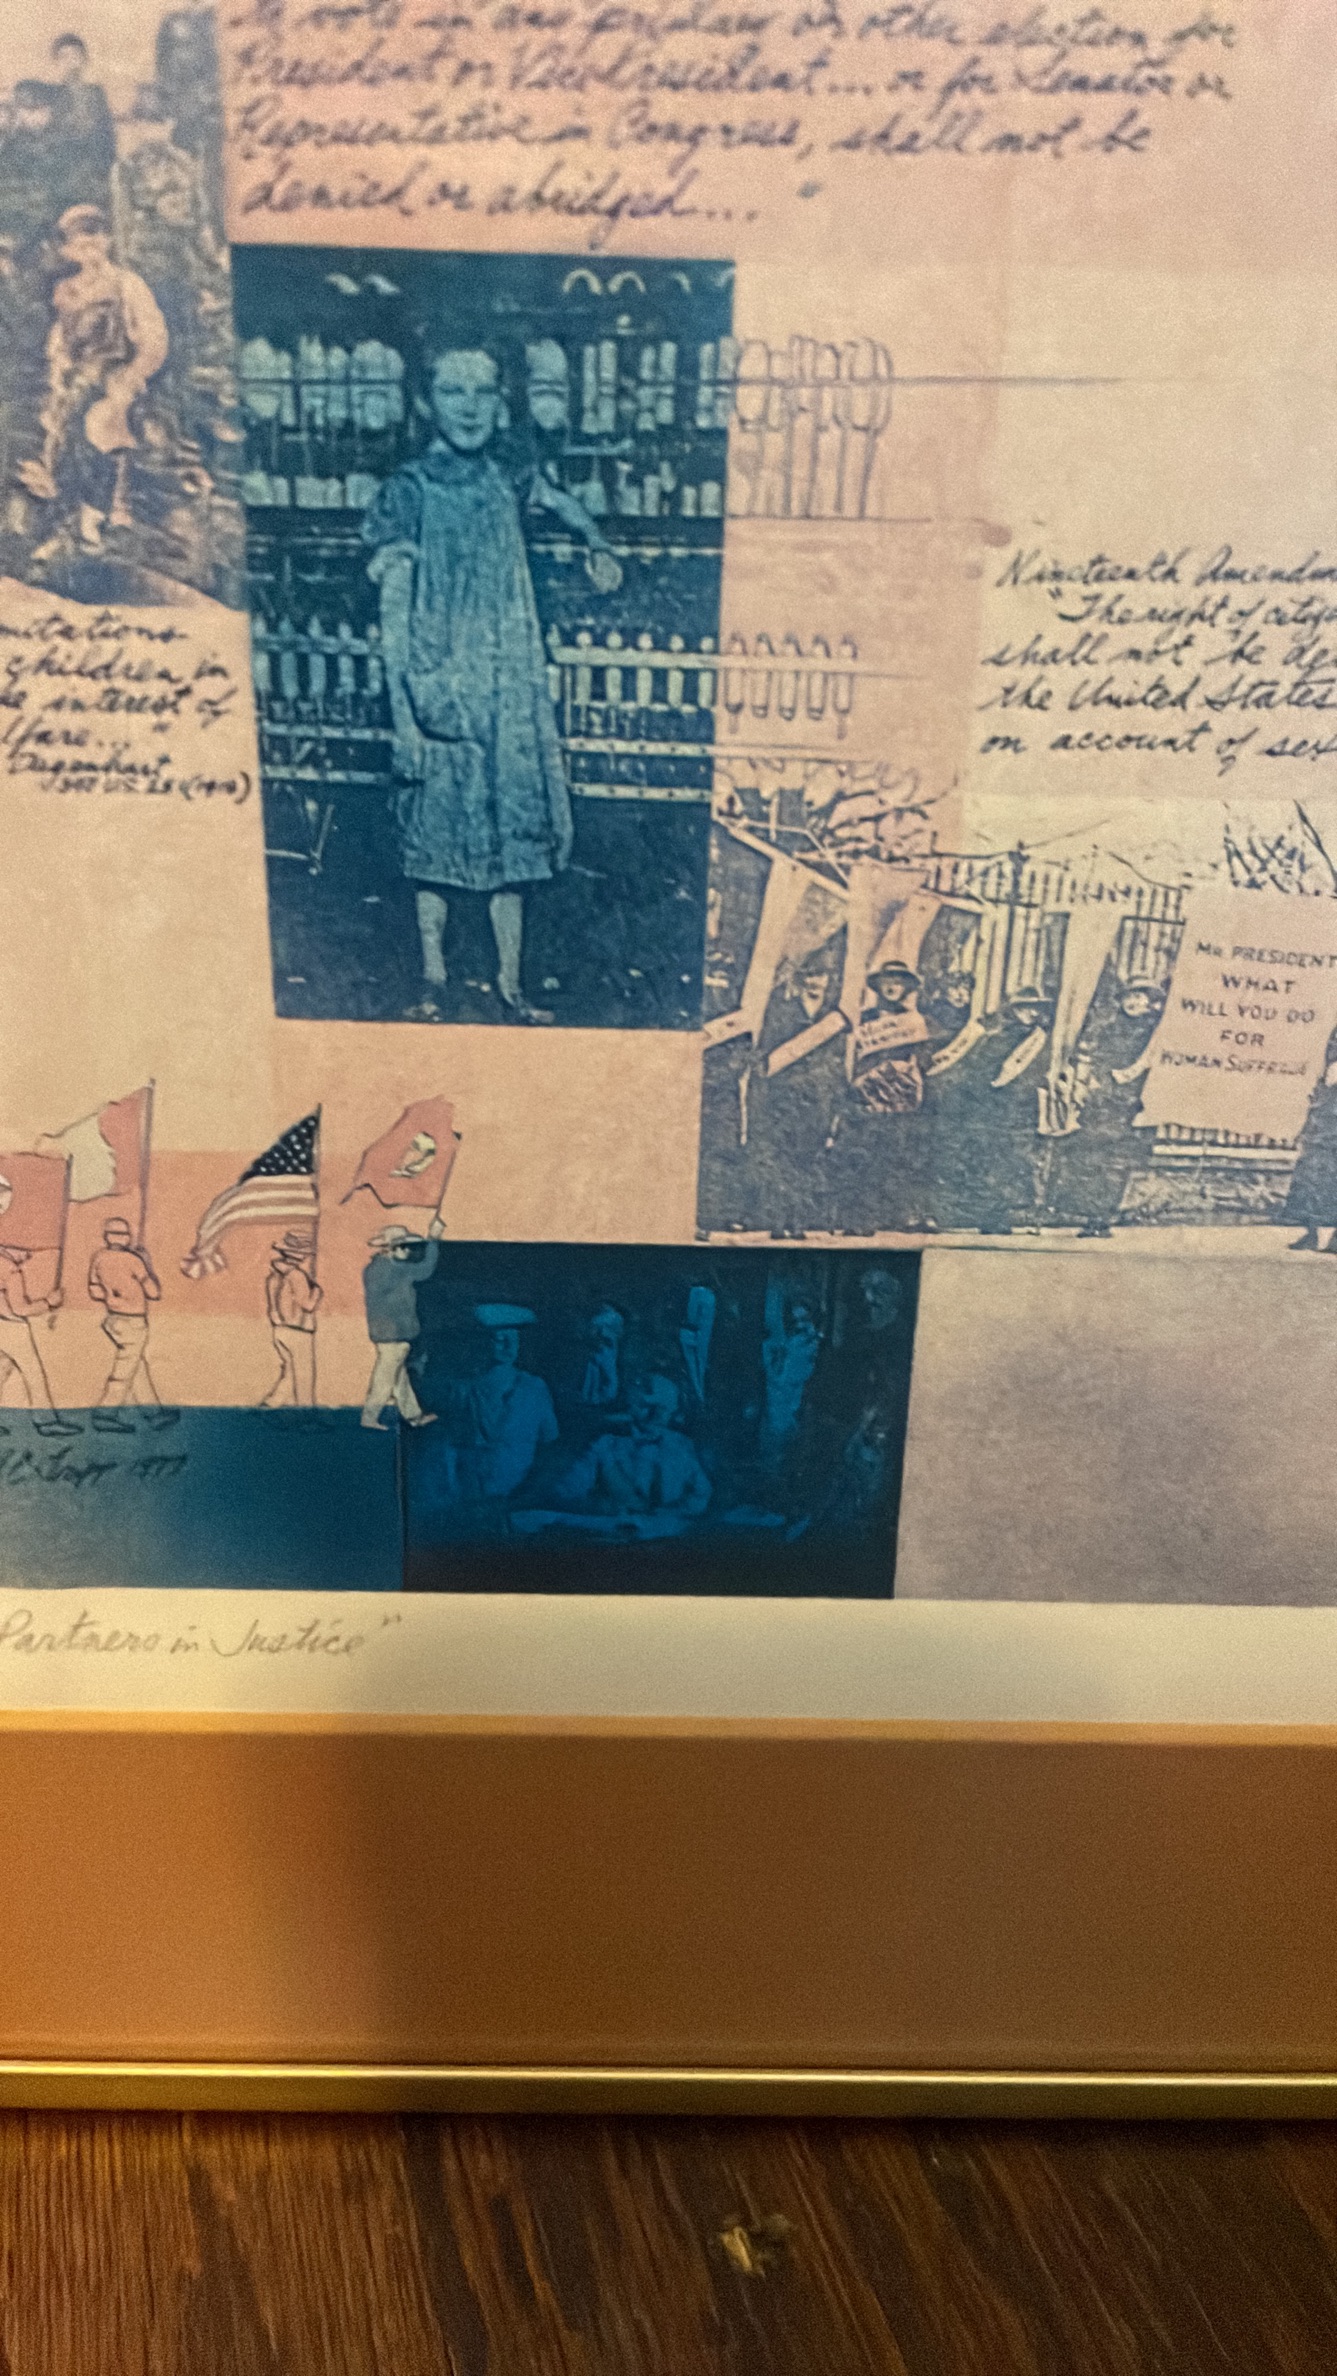 to vote in any primary or other election for
President or Vice President... or for Senator or
Representative in Congress, shall not be
denied or abridged.... "
mitations
children in
interest of
lfare... "
Dagenhart
Nineteenth Amendm
"The right of citize
shall not be de
the United States
on account of sex
MR. PRESIDENT
WHAT
WILL YOU DO
FOR
WOMAN SUFFRAGE
1977
Partners in Justice"